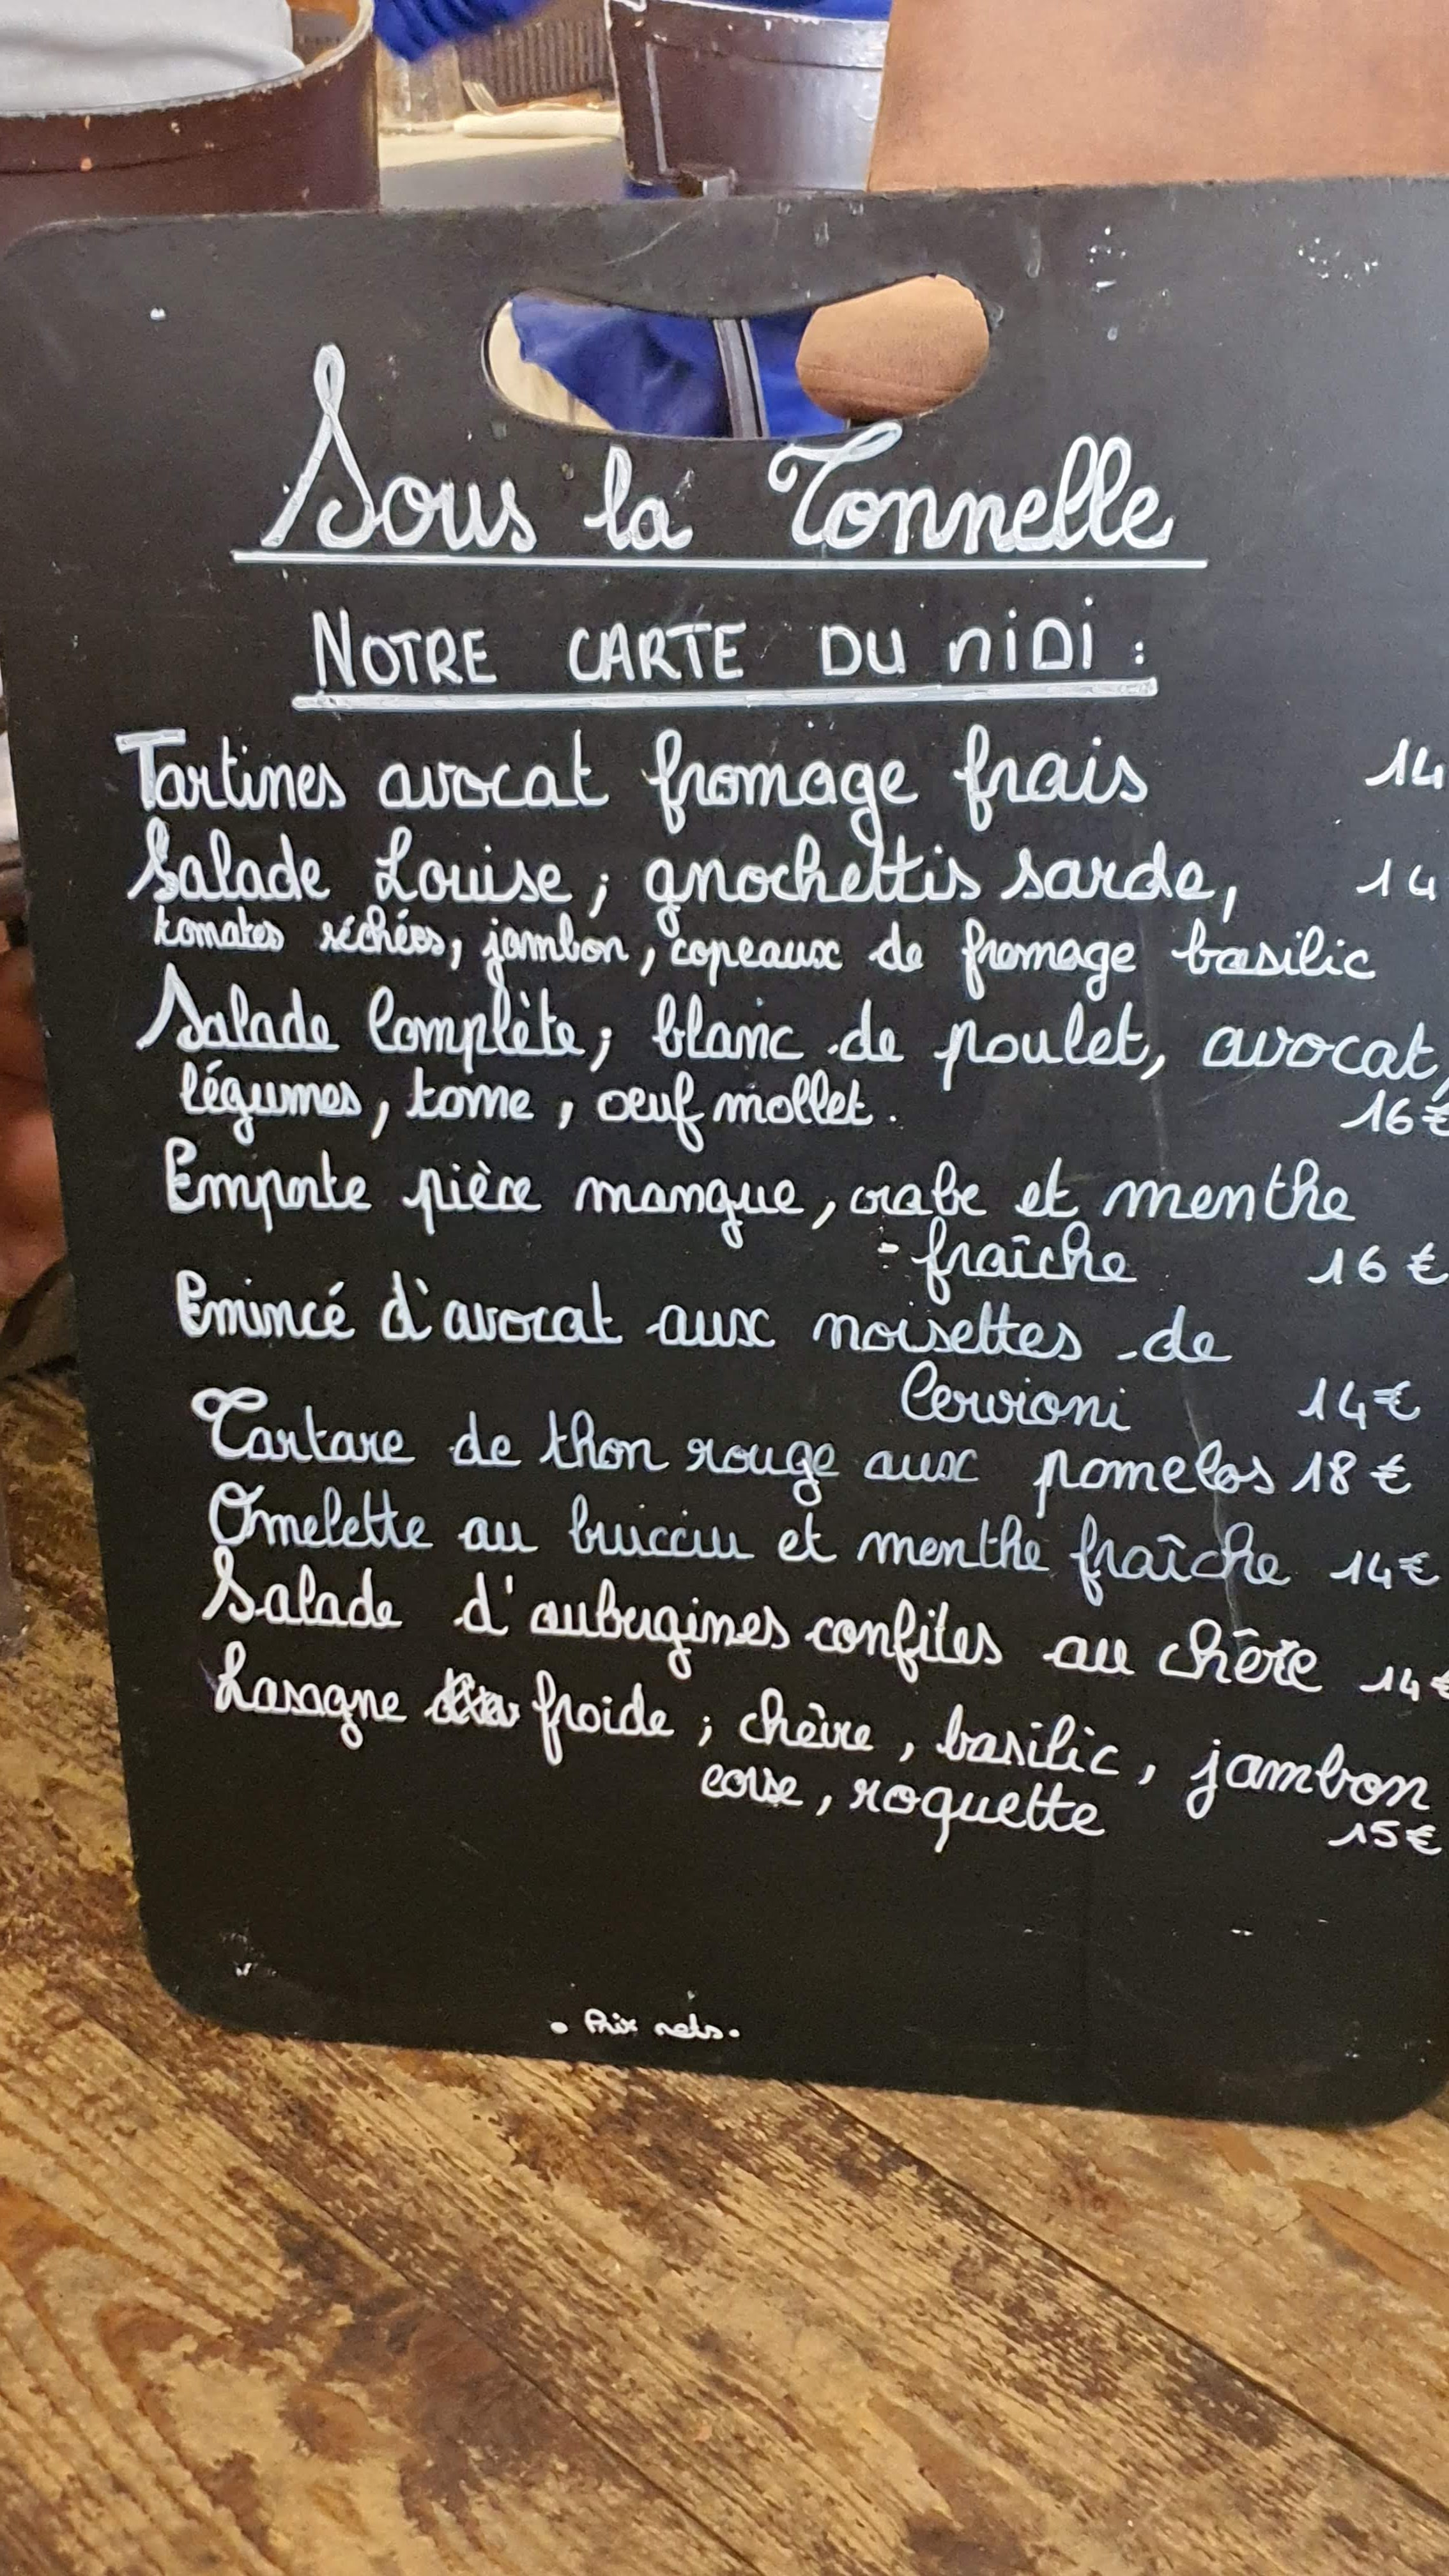 Sous la Tonnelle
NOTRE CARTE DU MIDI :
Tartines avocat fromage frais 14
Salade Louise ; gnochettis sarde, 14
tomates séchées, jambon, copeaux de fromage basilic
Salade Complète ; blanc de poulet, avocat,
légumes, tome, oeuf mollet. 16€
Emporte pièce mangue, crabe et menthe
fraîche 16 €
Emincé d'avocat aux noisettes de
Cervioni 14€
Tartare de thon rouge aux pomelos 18 €
Omelette au bricciu et menthe fraîche 14€
Salade d'aubergines confites au chèvre 14€
Lasagne froide ; chèvre, basilic, jambon
corse, roquette 15€
. Prix nets.